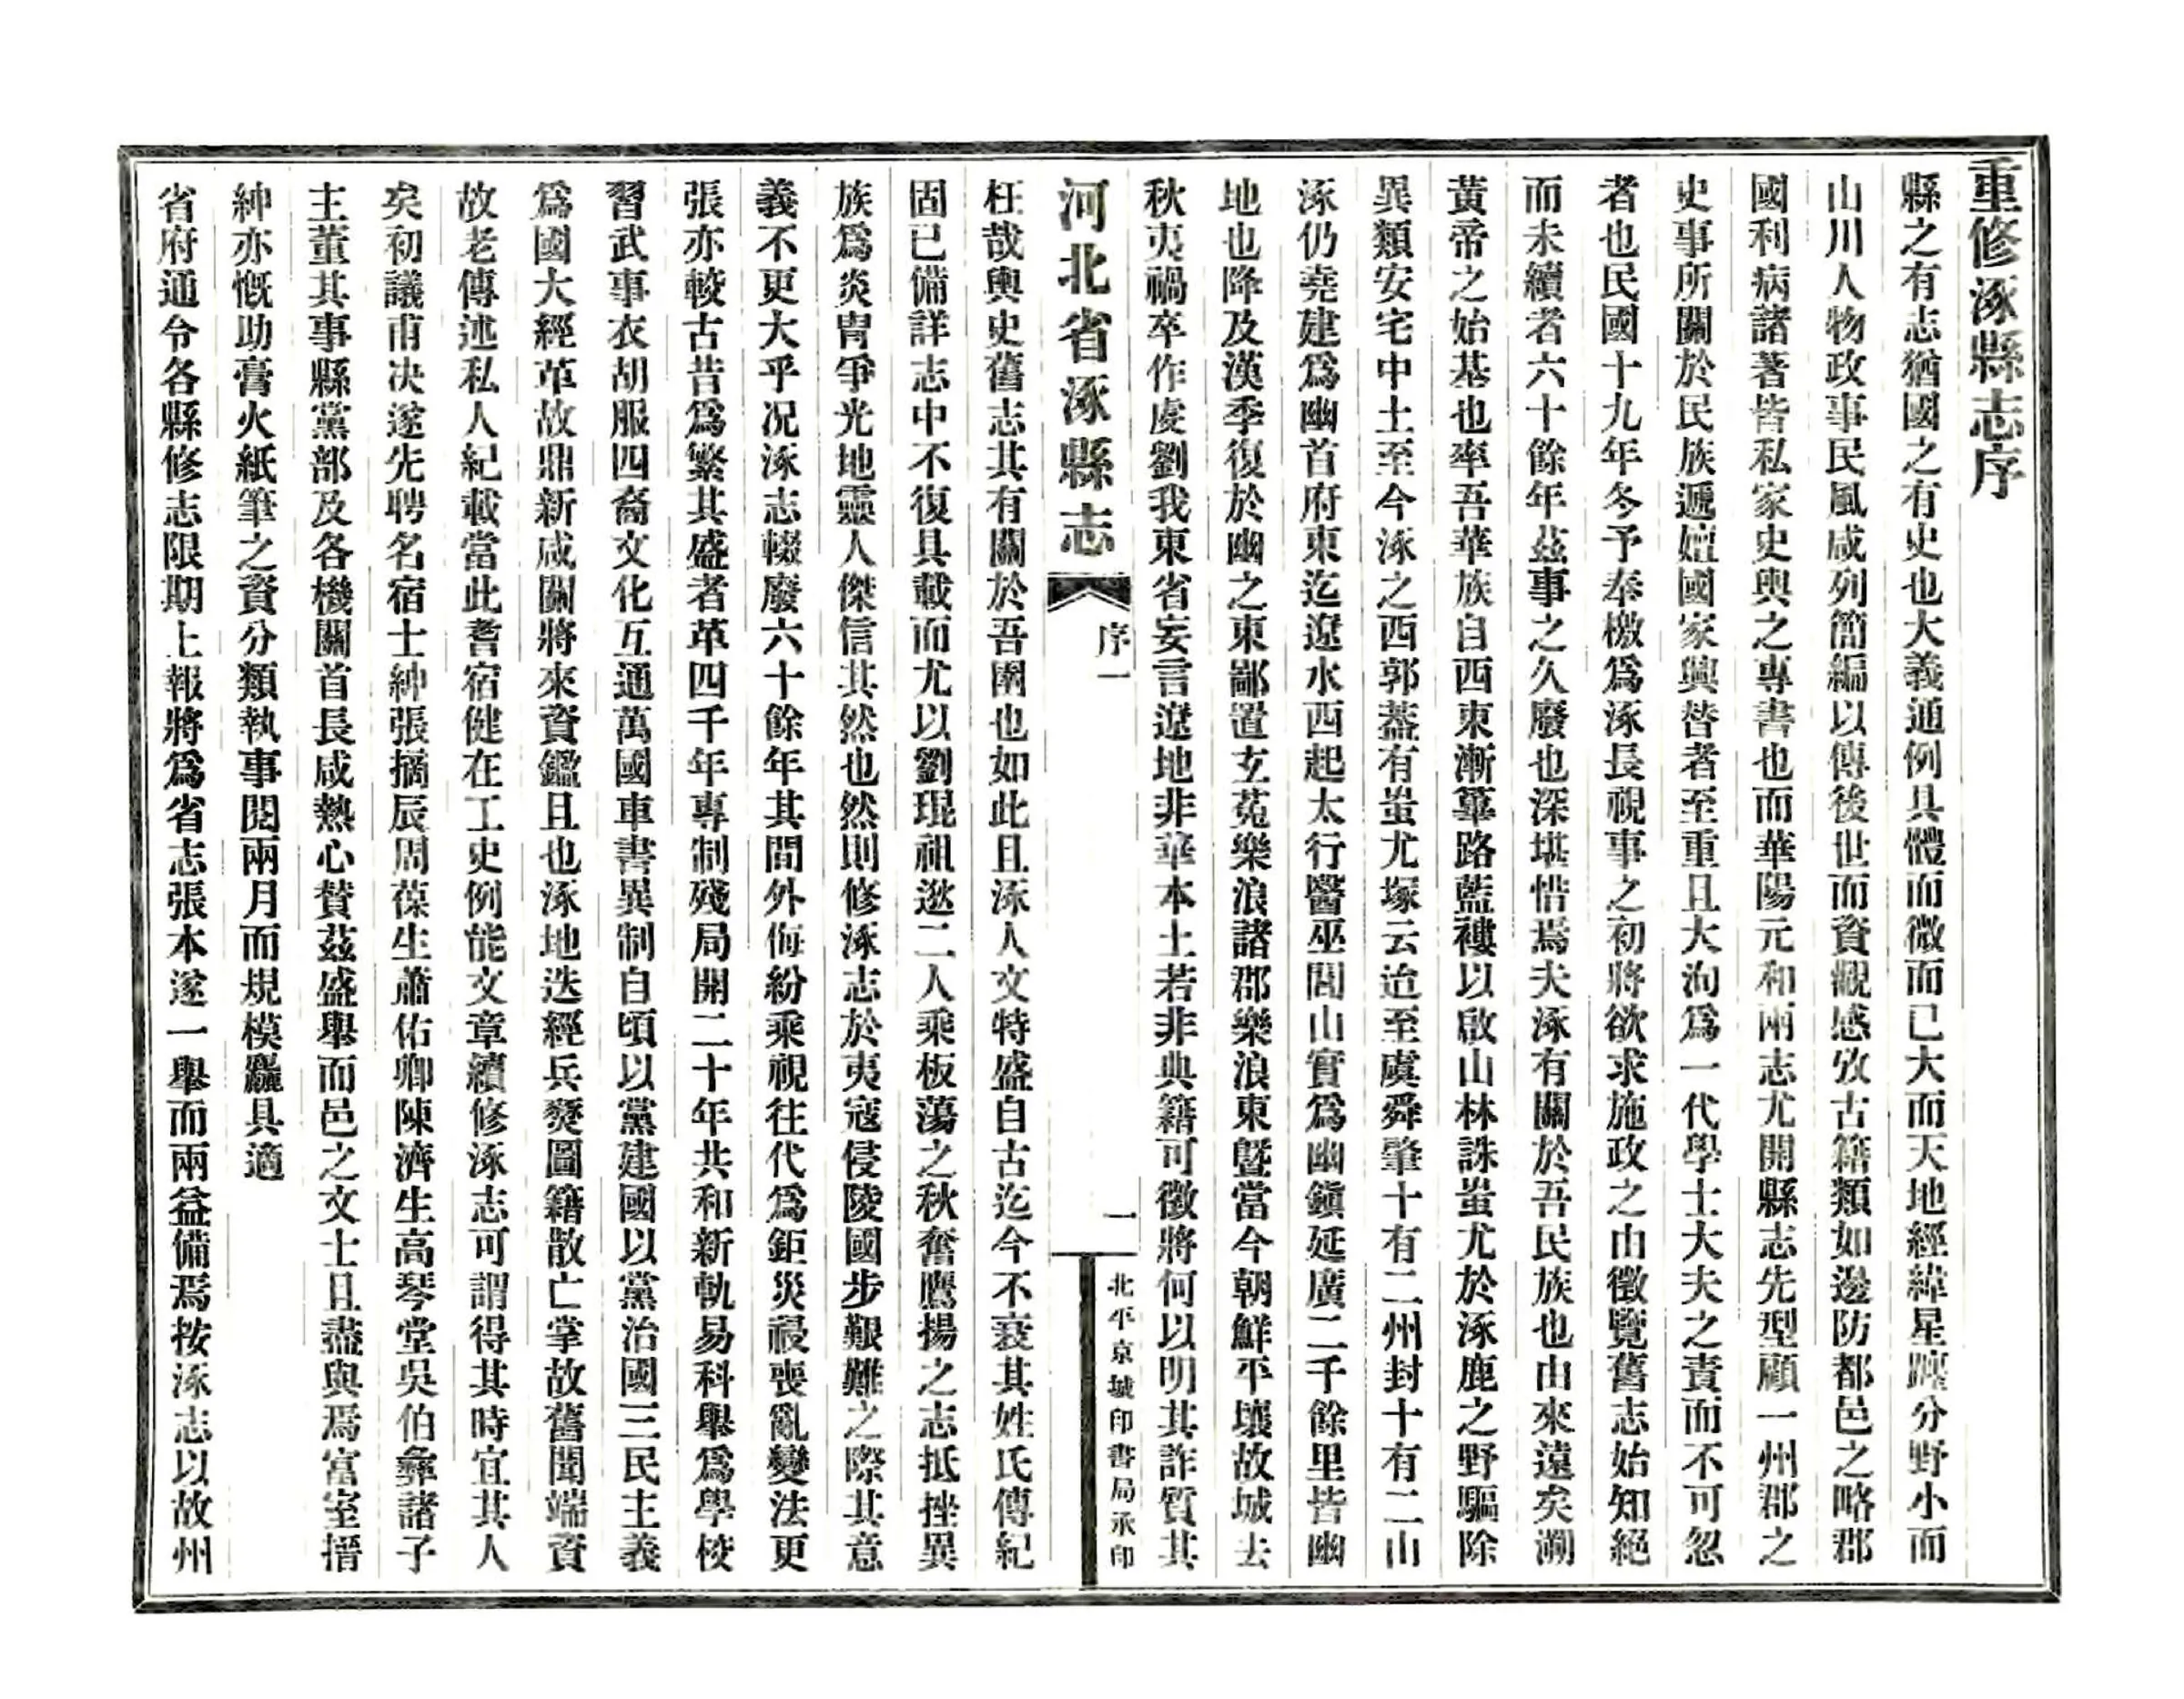 重修涿縣志序
縣之有志猶國之有史也大義通例具體而微而已大而天地經緯星躔分野小而
山川人物政事民風咸列簡編以傳後世而資觀感攷古籍類如邊防都邑之略郡
國利病諸著皆私家史輿之專書也而華陽元和兩志尤開縣志先型顧一州郡之
史事所關於民族遞嬗國家興替者至重且大洵爲一代學士大夫之責而不可忽
者也民國十九年冬予奉檄爲涿長視事之初將欲求施政之由徵覽舊志始知絕
而未續者六十餘年茲事之久廢也深堪惜焉夫涿有關於吾民族也由來遠矣溯
黃帝之始基也率吾華族自西東漸篳路藍褸以啟山林誅蚩尤於涿鹿之野驅除
異類安宅中土至今涿之西郭葢有蚩尤塚云迨至虞舜肇十有二州封十有二山
涿仍堯建爲幽首府東迄遼水西起太行醫巫閭山實爲幽鎭延廣二千餘里皆幽
地也降及漢季復於幽之東鄙置玄菟樂浪諸郡樂浪東曁當今朝鮮平壤故城去
秋夷禍卒作虔劉我東省妄言遼地非華本土若非典籍可徵將何以明其詐質其
河北省涿縣志
序一
一
北平京城印書局承印
枉哉輿史舊志其有關於吾圉也如此且涿人文特盛自古迄今不衰其姓氏傳紀
固已備詳志中不復具載而尤以劉琨祖逖二人乘板蕩之秋奮鷹揚之志抵挫異
族爲炎胄爭光地靈人傑信其然也然則修涿志於夷寇侵陵國步艱難之際其意
義不更大乎况涿志輟廢六十餘年其間外侮紛乘視往代爲鉅災祲喪亂變法更
張亦較古昔爲繁其盛者革四千年專制殘局開二十年共和新軌易科舉爲學校
習武事衣胡服四裔文化互通萬國車書異制自頃以黨建國以黨治國三民主義
爲國大經革故鼎新咸關將來資鑑且也涿地迭經兵燹圖籍散亡掌故舊聞端資
故老傳述私人紀載當此耆宿健在工史例能文章續修涿志可謂得其時宜其人
矣初議甫決遂先聘名宿士紳張摛辰周葆生蕭佑卿陳濟生高琴堂吳伯彝諸子
主董其事縣黨部及各機關首長咸熱心贊茲盛舉而邑之文士且盡與焉富室搢
紳亦慨助膏火紙筆之資分類執事閱兩月而規模麤具適
省府通令各縣修志限期上報將爲省志張本遂一舉而兩益備焉按涿志以故州